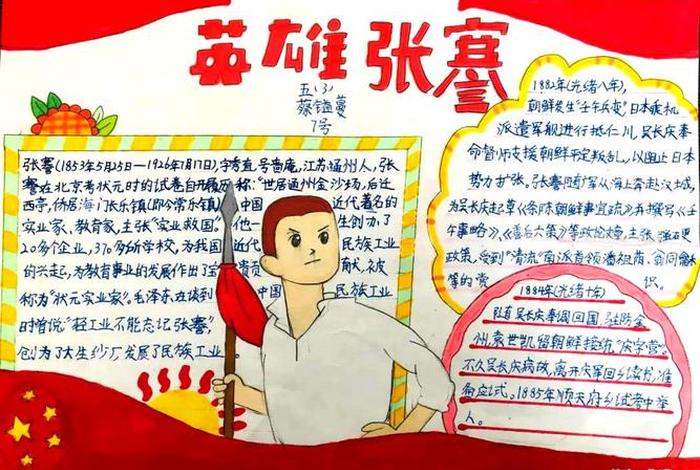 英雄张謇
五(3)
蔡镒蔓
7号
张謇(1853年5月25日—1926年7月17日),字季直,号啬庵,江苏通州人,张
謇在北京考状元时的试卷自开履历称:"世居通州金沙场,后迁
西亭,侨居海门长乐镇(即今常乐镇) 中国 近代著名的
实业家、教育家,主张"实业救国。他一 生创办了
20多个企业,370多所学校,为我国近代 民族工业
的兴起,为教育事业的发展作出了宝贵贡 献,被
称为"状元实业家。毛泽东在谈到 中国 民族工业
时曾说:"轻工业不能忘记张謇"
创办了大生纱厂发展了民族工业
1882年(光绪八年),
朝鲜发生"壬午兵变",日本乘机
派遣军舰进行抵仁川,吴长庆奉
命督师支援朝鲜平定叛乱,以阻止日本
势力扩张。张謇随庆军从海上奔赴汉城,
为吴长庆起草《条陈朝鲜事宜疏》并撰写《壬
午事略》、《善后六策》等政论文章,主张强硬
政策,受到"清流"南派首领潘祖荫、翁同龢
等的赏 识。
1884年(光绪十年)
随吴长庆奉调回国,驻防金
州,袁世凯留朝鲜接统"庆字营"。
不久吴长庆病故,离开庆军回乡读书,准
备应试。1885年顺天府乡试考中举
人。